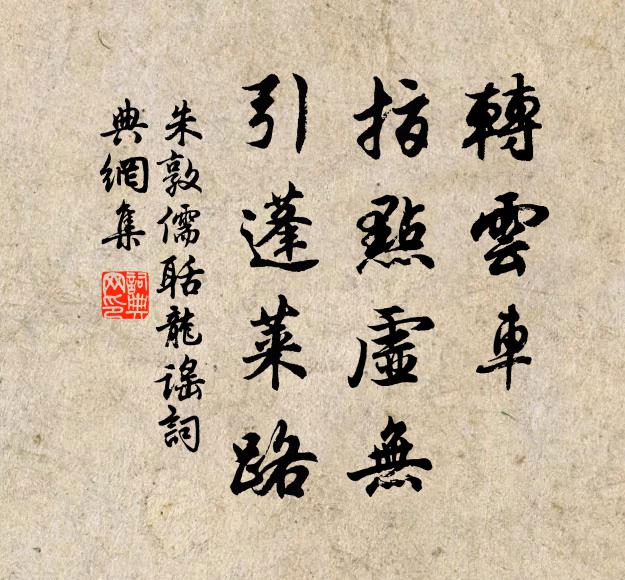 轉雲車
指點虛無
引蓬萊路
朱敦儒聒龍謠詞
典網集
詞典
网印